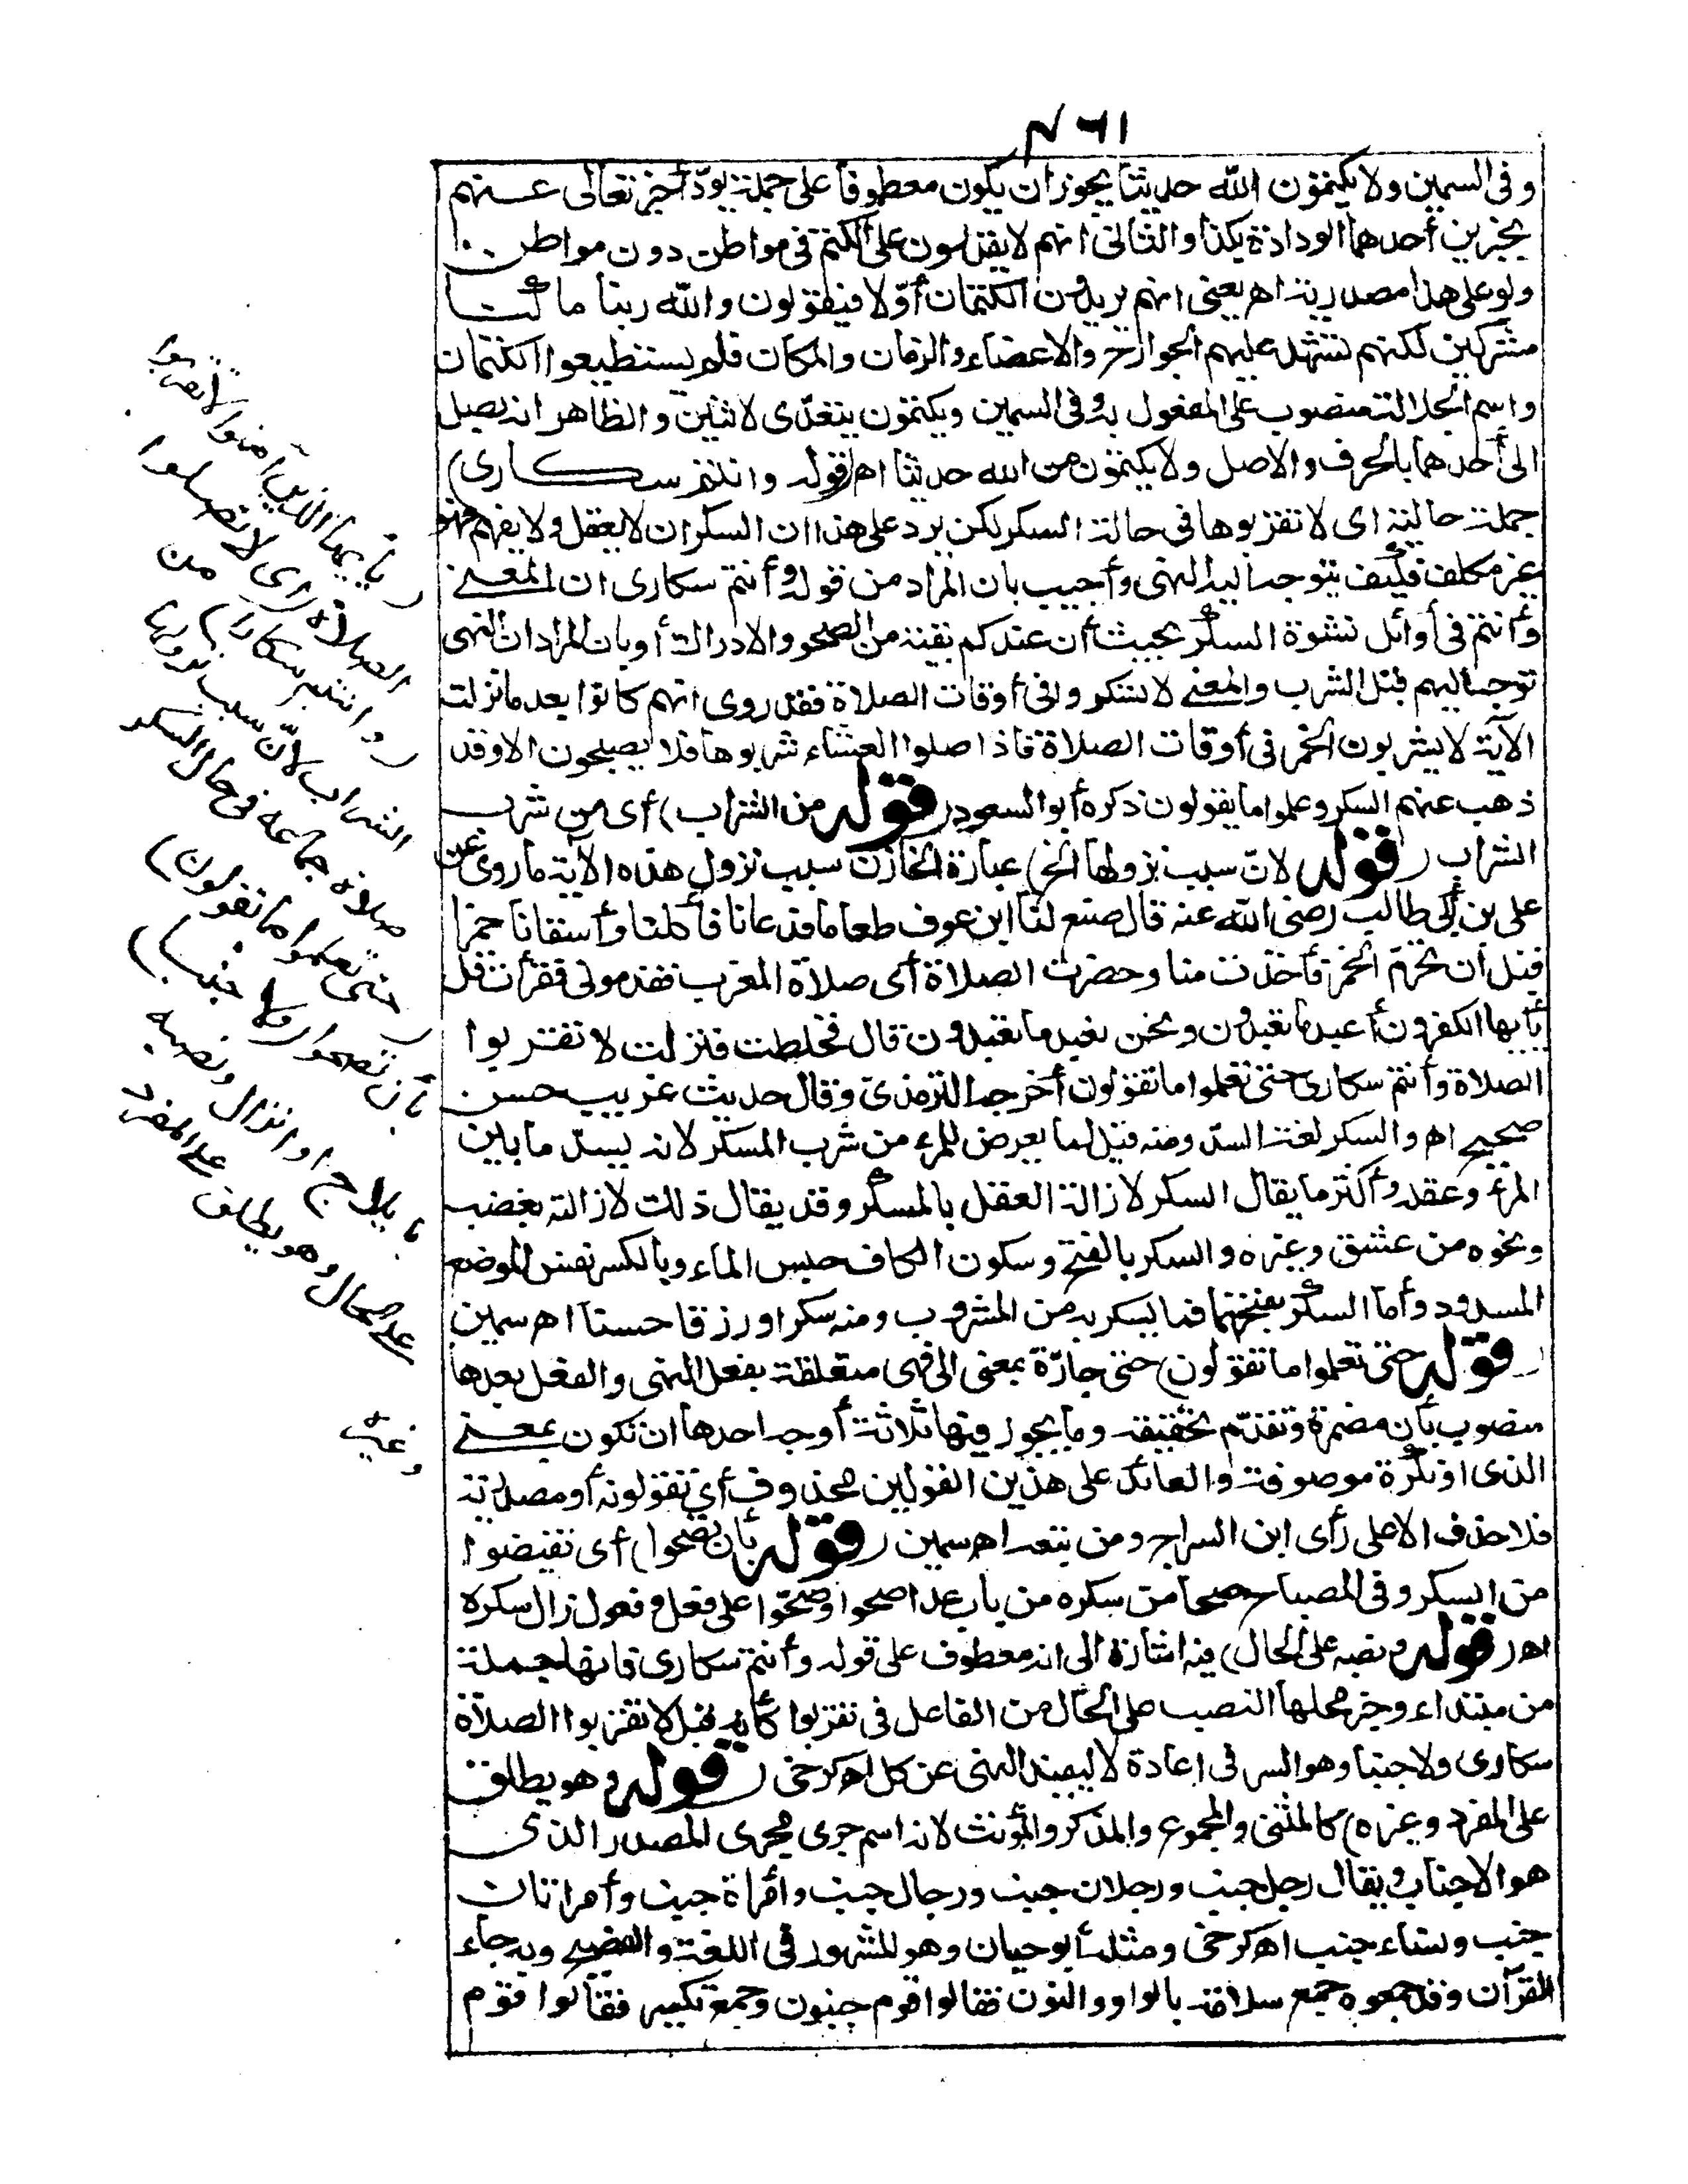 ٤٦١
وفى السمين ولا يكتمون الله حديثا يجوز ان يكون معطوفا على جملة يودّ أخبر تعالى عنهم
بخبرين أحدهما الودادة بكذا والثانى انهم لا يقدرون على الكتم فى مواطن دون مواطن
ولو على هذا مصدرية اهـ يعنى انهم يريدون الكتمان أوّلا فيقولون والله ربنا ما كنا
مشركين لكنهم تشهد عليهم الجوارح والاعضاء والزمان والمكان فلم يستطيعوا الكتمان
واسم الجلالة منصوب على المفعول به وفى السمين ويكتمون يتعدّى لاثنين والظاهر انه يصل
الى أحدهما بالحرف والاصل ولا يكتمون من الله حديثا اهـ (قوله وانتم سكارى)
جملة حالية اى لا تقربوها فى حالة السكر لكن يرد على هذا ان السكران لا يعقل ولا يفهم فهو
غير مكلف فكيف يتوجه اليه النهى وأجيب بان المراد من قوله وأنتم سكارى ان المعنى
وأنتم فى أوائل نشوة السكر بحيث أن عندكم بقية من الصحو والادراك أو بان المراد ان النهى
توجه اليهم قبل الشرب والمعنى لا تسكروا فى أوقات الصلاة فقد روى انهم كانوا بعد ما نزلت
الآية لا يشربون الخمر فى أوقات الصلاة فاذا صلوا العشاء شربوها فلا يصبحون الا وقد
ذهب عنهم السكر وعلموا ما يقولون ذكره أبو السعود (قوله من الشراب) أى من شرب
الشراب (قوله لانّ سبب نزولها الخ) عبارة الخازن سبب نزول هذه الآية ما روى عن
على بن أبى طالب رضى الله عنه قال صنع لنا ابن عوف طعاما فدعانا فأكلنا وأسقانا خمرا
قبل أن تحرّم الخمر فأخذت منا وحضرت الصلاة أى صلاة المغرب فقدمونى فقرأت قل
يأيها الكفرون أعبد ما تعبدون ونحن نعبد ما تعبدون قال فخلطت فنزلت لا تقربوا
الصلاة وأنتم سكارى حتى تعلموا ما تقولون أخرجه الترمذى وقال حديث غريب حسن
صحيح اهـ والسكر لغة السدّ ومنه قيل لما يعرض للمرء من شرب المسكر لانه يسدّ ما بين
المرء وعقله وأكثر ما يقال السكر لازالة العقل بالمسكر وقد يقال ذلك لازالته بغضب
ونحوه من عشق وغيره والسكر بالفتح وسكون الكاف حبس الماء وبالكسر نفس الموضع
المسدود وأما السكر بفتحهما فما يسكر به من المشروب ومنه سكرا ورزقا حسنا اهـ سمين
(قوله حتى تعلموا ما تقولون) حتى جارّة بمعنى الى فهى متعلقة بفعل النهى والفعل بعدها
منصوب بأن مضمرة وتقدّم تحقيقه وما يجوز فيها ثلاثة أوجه احدها ان تكون بمعنى
الذى او نكرة موصوفة والعائد على هذين القولين محذوف أى تقولونه أو مصدرية
فلا حذف الا على رأى ابن السراج ومن تبعه اهـ سمين (قوله بأن تصحوا) أى تفيضوا
من السكر وفى المصباح صحا من سكره من باب عدا صحوا وصحّوا على فعل وفعول زال سكره
اهـ (قوله ونصبه على الحال) فيه اشارة الى انه معطوف على قوله وأنتم سكارى فانها جملة
من مبتداء وخبر محلها النصب على الحال من الفاعل فى تقربوا كأنه قيل لا تقربوا الصلاة
سكارى ولا جنبا وهو السر فى اعادة لا ليفيد النهى عن كل اهـ كرخى (قوله وهو يطلق
على المفرد وغيره) كالمثنى والمجموع والمذكر والمؤنث لانه اسم جرى مجرى المصدر الذى
هو الاجناب ويقال رجل جنب ورجلان جنب ورجال جنب وامرأة جنب وأمراتان
جنب ونساء جنب اهـ كرخى ومثله أبو حيان وهو المشهور فى اللغة والفصيح وبه جاء
القرآن وقد جمعوه جمع سلامة بالواو والنون فقالوا قوم جنبون وجمع تكسير فقالوا قوم
(يأيها الذين آمنوا لا تقربوا
الصلاة) اى لا تصلوا
(وانتم سكارى) من
الشراب لانّ سبب نزولها
صلاة جماعة فى حال السكر
(حتى تعلموا ما تقولون)
بأن تصحوا (ولا جنبا)
بايلاج او انزال ونصبه
على الحال وهو يطلق على المفرد
وغيره